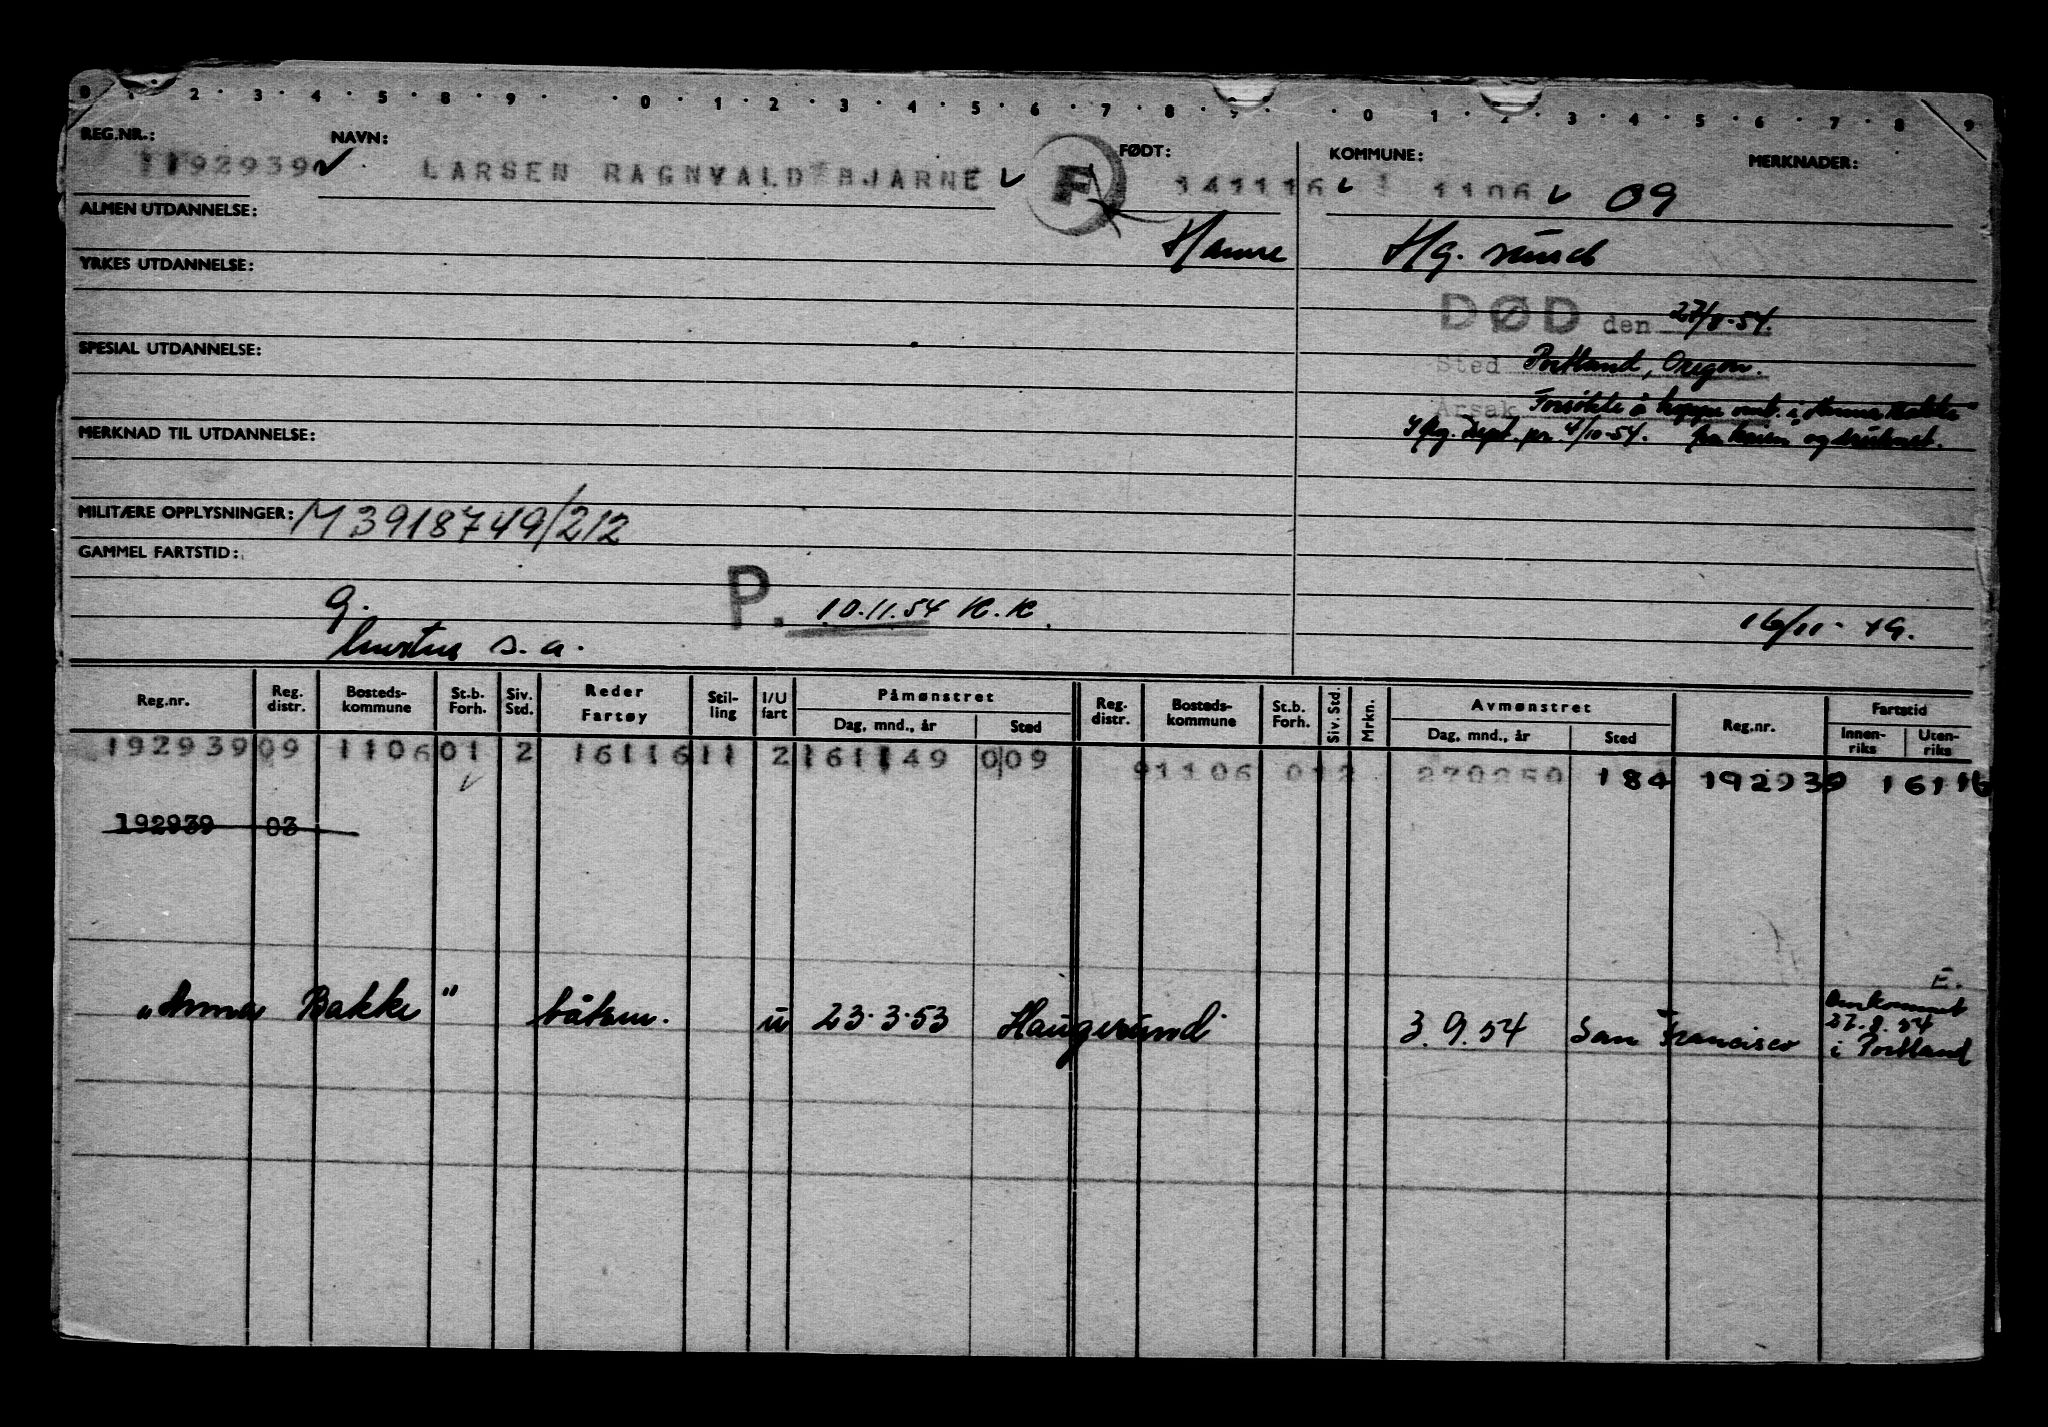 0 1 2 · 3 · 4 · 5 · 8 · 9 · 0 · 1 · 2 · 3 · 4 · 5 · 6 · 7 · 8 · 9 · 0 · 1 · 2 · 3 · 4 · 5 · 6 · 7 · 8 · 9
REG.NR.: NAVN: FØDT: KOMMUNE: MERKNADER:
192939 LARSEN RAGNVALD BJARNE F 141116 1106 09
ALMEN UTDANNELSE:
Hamre Hg. sund
YRKES UTDANNELSE:
DØD den 27/8-54.
SPESIAL UTDANNELSE:
Sted Portland, Oregon.
Årsak Forsøkte å hoppe omb. i "Anna Bakke"
MERKNAD TIL UTDANNELSE:
Dept. pr. /10-54. fra kaien og druknet.
MILITÆRE OPPLYSNINGER: M3918749/212
GAMMEL FARTSTID:
P. 10.11.54 K.K.
g.
s.a.
16/11- 49.
Reg.nr. Reg. distr. Bosteds- kommune St.b. Forh. Siv. Std. Reder Fartøy Stil- ling I/U fart Påmønstret Dag, mnd., år Sted Reg. distr. Bosteds- kommune St.b. Forh. Siv. Std. Mrkn. Avmønstret Dag, mnd., år Sted Reg.nr. Fartstid Innen- riks Uten- riks
192939 09 1106 01 2 16116 11 2 161149 009 91106 012 270250 184 192939 16116
192939 03
E.
"Anna Bakke" båtsm. u 23.3.53 Haugesund 3.9.54 San Francisco Omkommet
27.8.54
i Portland